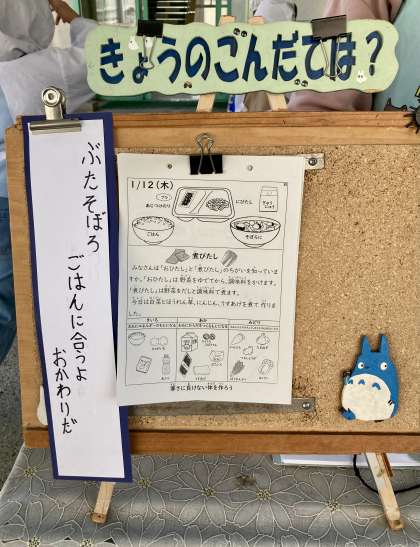 きょうのこんだては?
ぶたそぼろ
ごはんに合うよ
おかわりだ
1/12(木)
のり
あじつけのり
にびたし
ぎゅうにゅう
ごはん
そぼろに
煮びたし
みなさんは「おひたし」と「煮びたし」のちがいを知っていま
すか。「おひたし」は野菜をゆでてから、調味料をかけます。
「煮びたし」は野菜をだしと調味料で煮ます。
今日は白菜とほうれん草、にんじん、うすあげを煮て作りま
した。
きいろ
あか
みどり
寒さに負けない体を作ろう